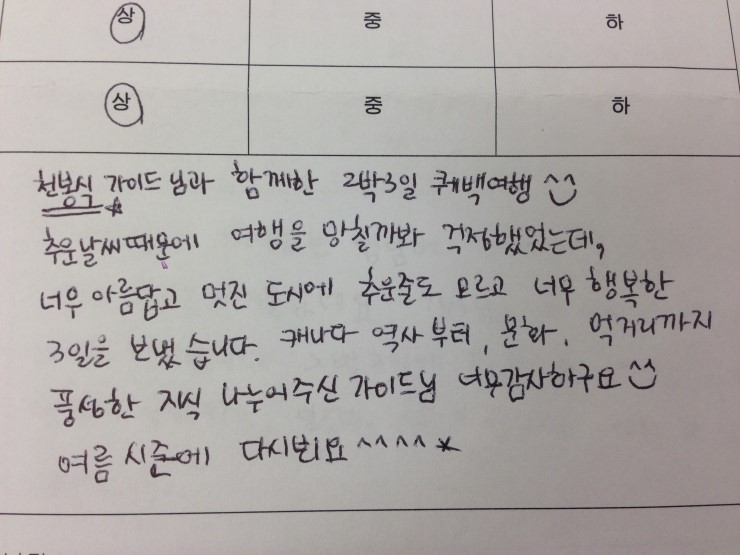 상 중 하
상 중 하
천봉식 가이드님과 함께한 2박3일 퀘백여행 ^^
추운날씨때문에 여행을 망칠까봐 걱정했었는데,
너무 아름답고 멋진 도시에 추운줄도 모르고 너무 행복한
3일을 보냈습니다. 캐나다 역사부터, 문화, 먹거리까지
풍성한 지식 나누어주신 가이드님 너무감사하구요 ^^
여름 시즌에 다시뵈요 ^^^^*